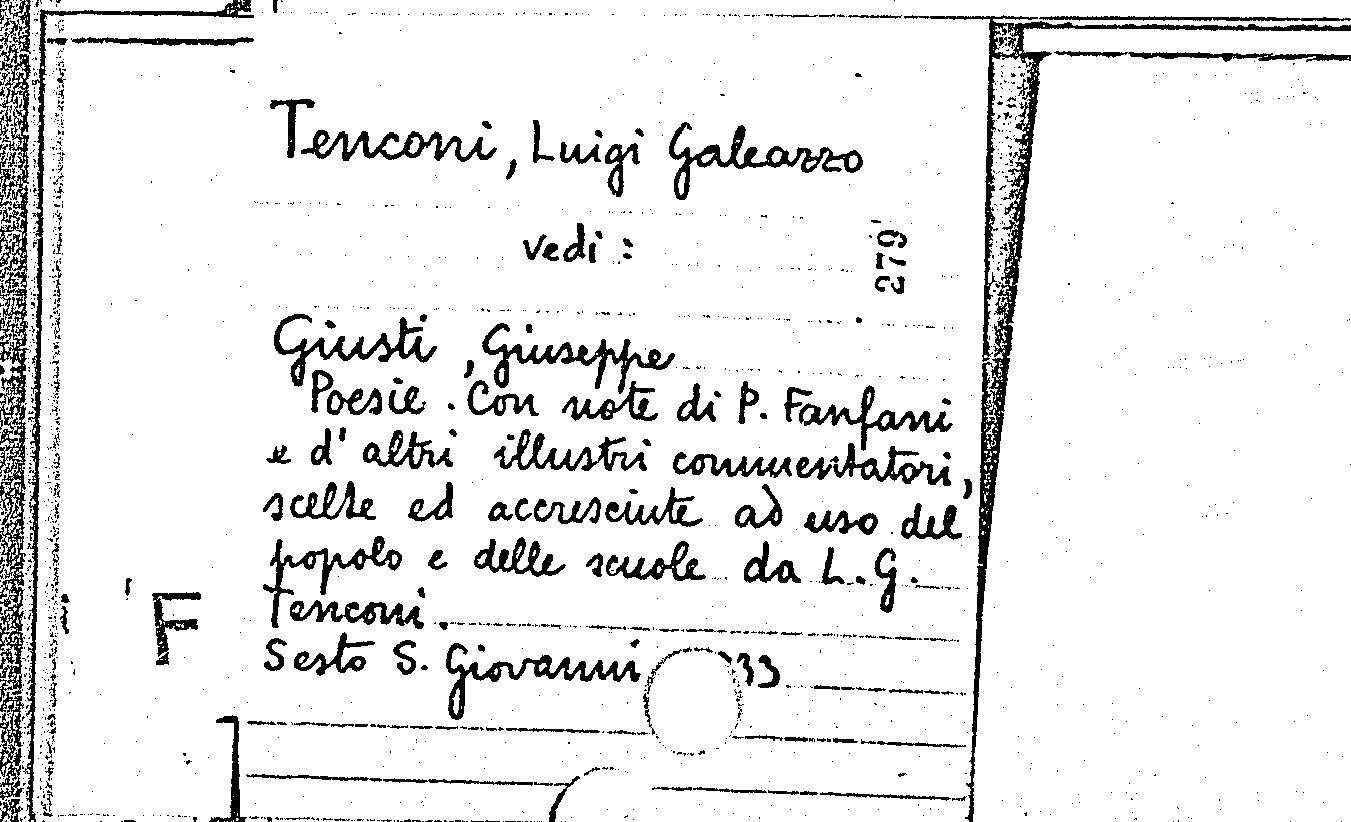 Tenconi, Luigi Galeazzo
vedi :
279
Giusti, Giuseppe
Poesie. Con note di P. Fanfani
e d'altri illustri commentatori,
scelte ed accresciute ad uso del
popolo e delle scuole da L.G.
Tenconi.
Sesto S. Giovanni 33
F